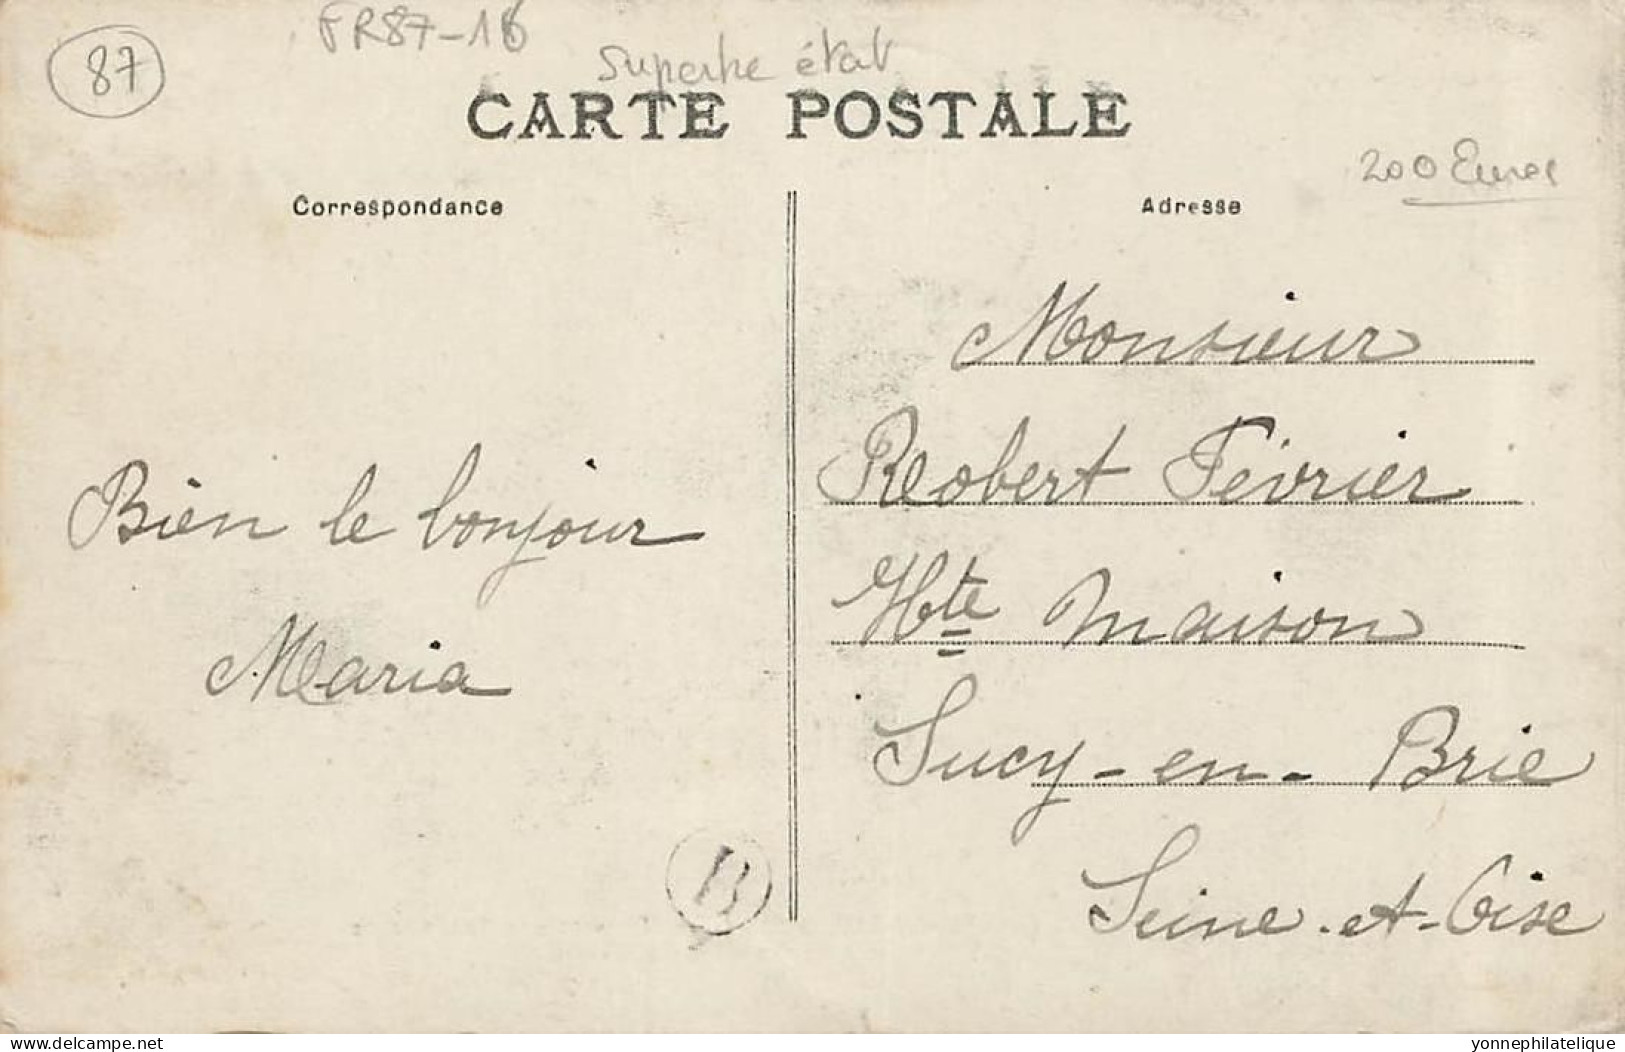 87
FR87-16
superbe état
CARTE POSTALE
200 Euros
Correspondance
Adresse
Bien le bonjour
Maria
Monsieur
Robert Février
Hte maison
Sucy-en-Brie
Seine-et-Oise
B
yonnephilatelique
© delcampe.net